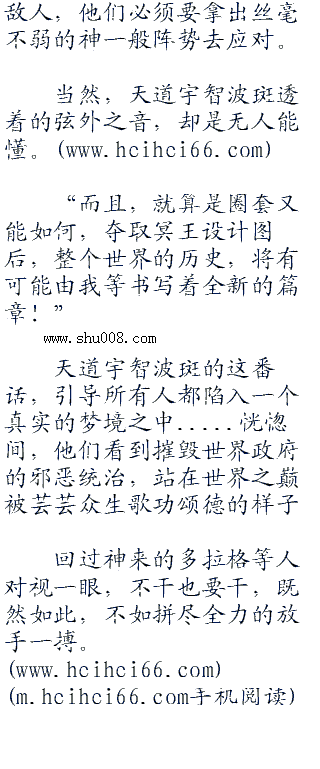 敌人，他们必须要拿出丝毫
不弱的神一般阵势去应对。
当然，天道宇智波斑透
着的弦外之音，却是无人能
懂。(www.hcihci66.com)
“而且，就算是圈套又
能如何，夺取冥王设计图
后，整个世界的历史，将有
可能由我等书写着全新的篇
章！”
www.shu008.com
天道宇智波斑的这番
话，引导所有人都陷入一个
真实的梦境之中.....恍惚
间，他们看到摧毁世界政府
的邪恶统治，站在世界之巅
被芸芸众生歌功颂德的样子
回过神来的多拉格等人
对视一眼，不干也要干，既
然如此，不如拼尽全力的放
手一搏。
(www.hcihci66.com)
(m.hcihci66.com手机阅读)